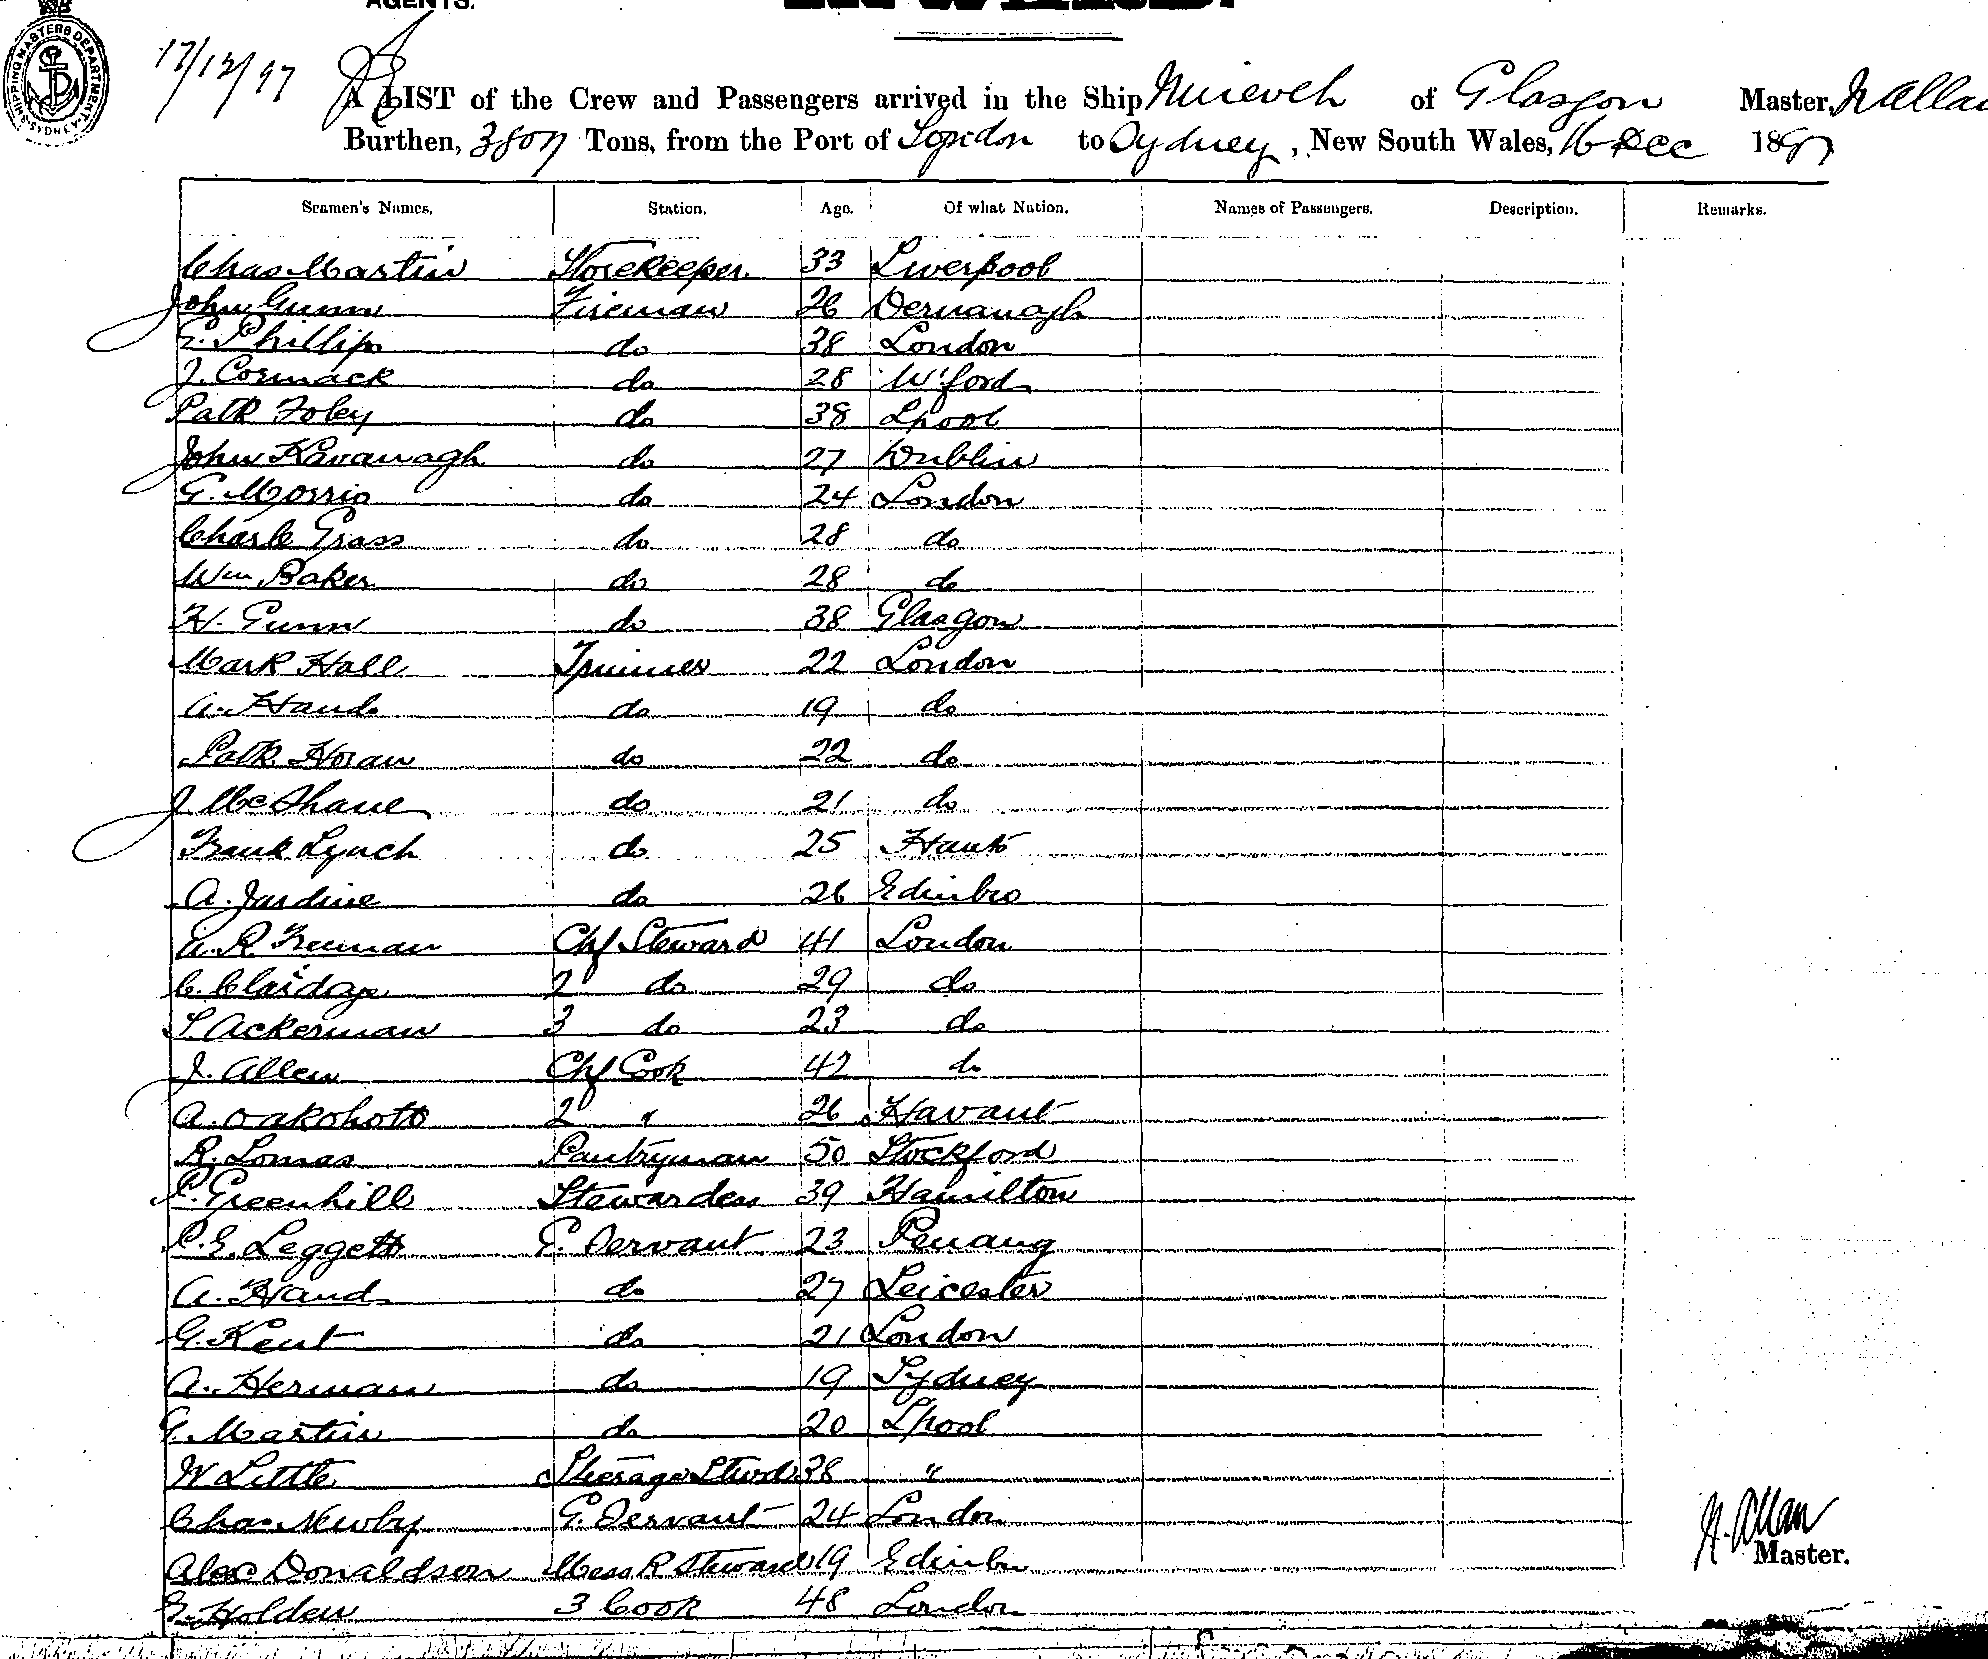 AGENTS.
SHIPPING MASTERS DEPARTMENT SYDNEY
17/12/97
A LIST of the Crew and Passengers arrived in the Ship Nineveh of Glasgow Master, N Allan
Burthen, 3807 Tons, from the Port of London to Sydney, New South Wales, 16 Dec 1897
Seamen's Names. Station. Age. Of what Nation. Names of Passengers. Description. Remarks.
Chas Martin Storekeeper 33 Liverpool
John Gunn Fireman 26
G. Phillips do 38 London
J. Cormack do 28 W'ford
Patk Foley do 38 Lpool
John Kavanagh do 27 Dublin
G. Morris do 24 London
Charle Grass do 28 do
Wm Baker do 28 do
H. Gunn do 38 Glasgow
Mark Hall Trimmer 22 London
A. Hands do 19 do
Patk Horan do 22 do
J McShane do 21 do
Frank Lynch do 25 Hants
A. Jardine do 26 Edinbro
A. R. Freeman Chf Steward 41 London
C. Claridge 2 do 29 do
S. Ackerman 3 do 23 do
J. Allen Chf Cook 42 do
A. Oakshott 2 " 26 Havant
R. Lomas Pantryman 50 Stockford
C. Greenhill Stewardess 39 Hamilton
C. E. Leggett G. Servant 23 Penang
A. Hand do 27 Leicester
G. Kent do 21 London
A. Herman do 19 Sydney
G. Martin do 20 Lpool
W Little Steerage Stwd 38 "
Chas Newby G. Servant 24 London
Alex Donaldson Mess R Steward 19 Edinbro
G. Holden 3 Cook 48 London
H. Allan
Master.